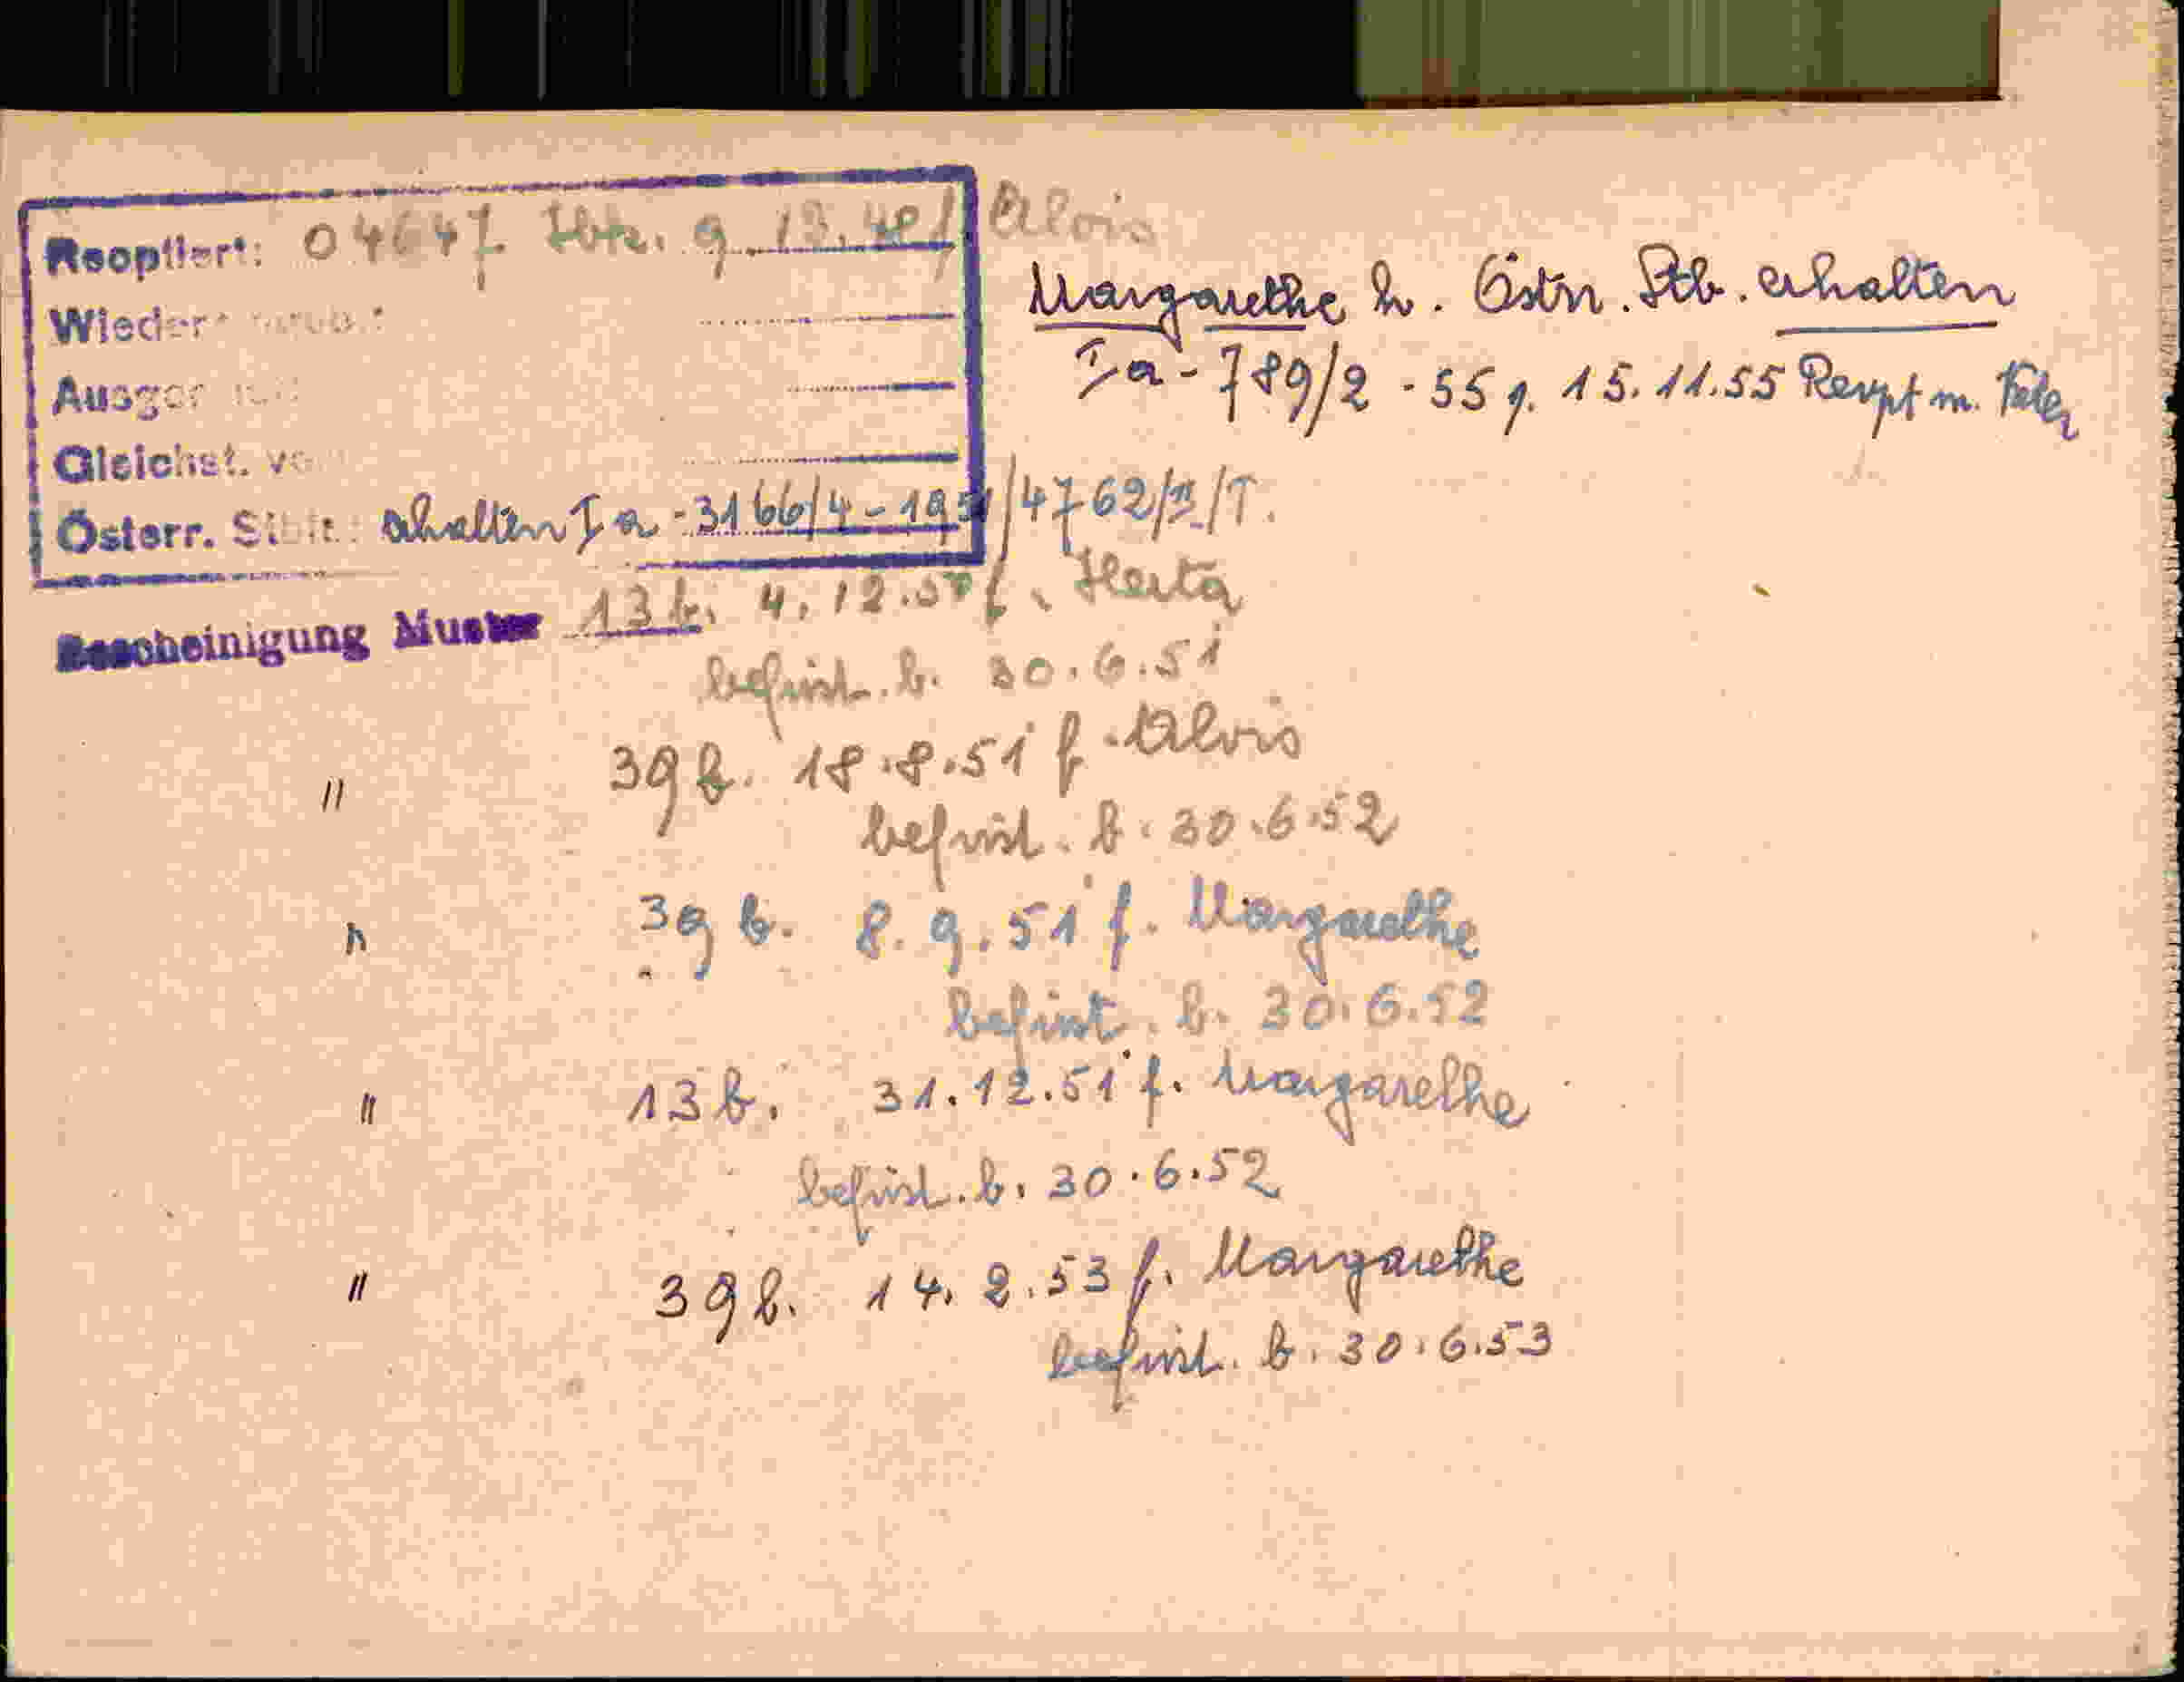 Reoptiert: 04647 Ibk. 9.13.48 / Alois
Wieder
Margarethe h. Östrr. Stb. erhalten
Ausgar
Ia - 789/2 - 55 v. 15.11.55 Rezpt m.
Gleichst. vo
Österr. Stbit: erhalten Ia - 3166/4 - 1951/4762/II/T.
Bescheinigung Muster 13 b. 4.12.50 f. Herta
befrist. b. 30.6.51
" 39 b. 18.8.51 f. Alois
befrist. b. 30.6.52
" 39 b. 8.9.51 f. Margarethe
befrist. b. 30.6.52
" 13 b. 31.12.51 f. Margarethe
befrist. b. 30.6.52
" 39 b. 14.2.53 f. Margarethe
befrist. b. 30.6.53